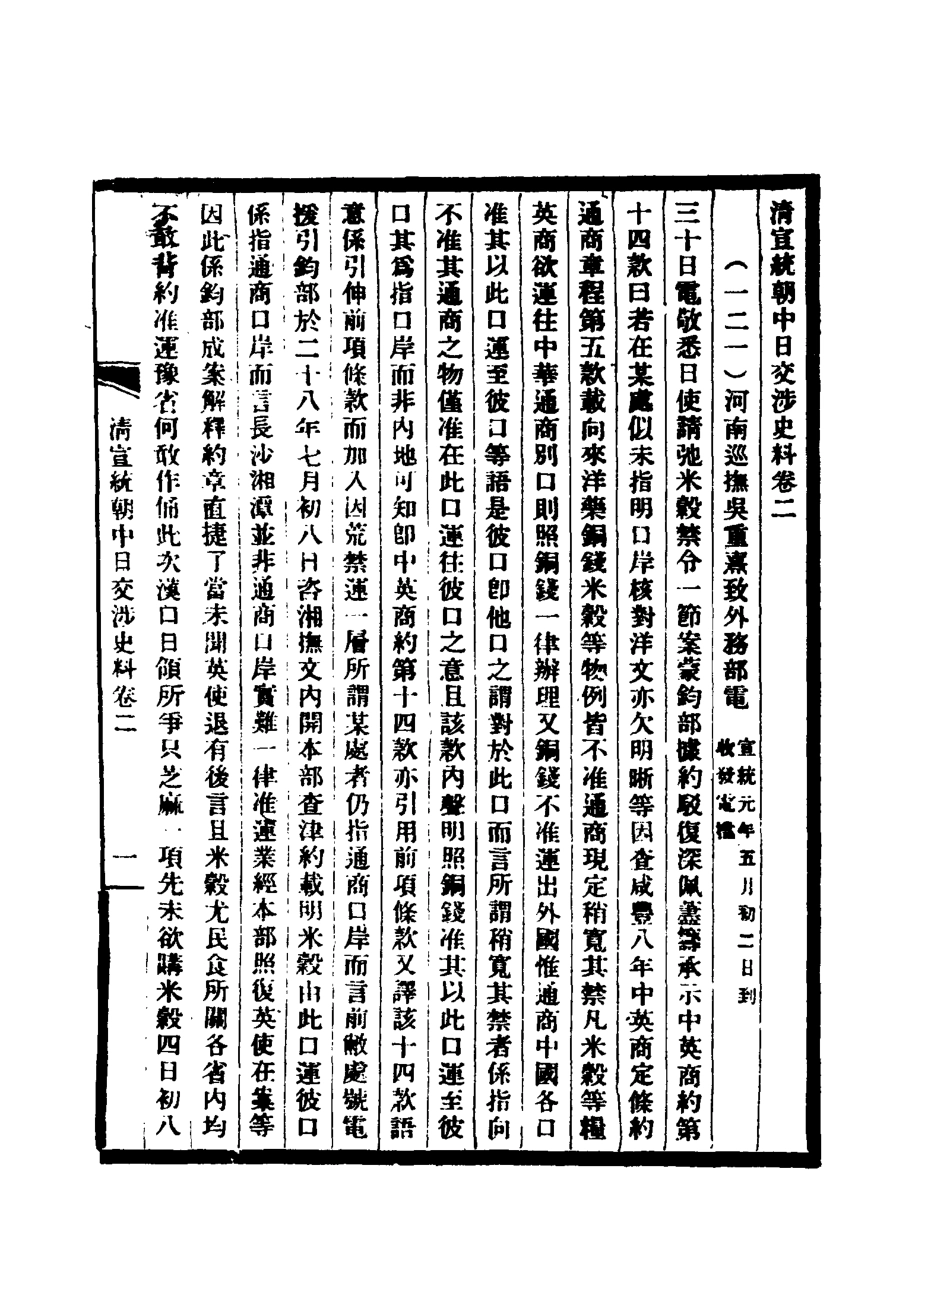 清宣統朝中日交涉史料卷二
（一二一）河南巡撫吳重熹致外務部電
宣統元年五月初二日到
收發電檔
三十日電敬悉日使請弛米穀禁令一節案蒙鈞部據約駁復深佩藎籌承示中英商約第
十四款曰若在某處似未指明口岸核對洋文亦欠明晰等因查咸豐八年中英商定條約
通商章程第五款載向來洋藥銅錢米穀等物例皆不准通商現定稍寬其禁凡米穀等糧
英商欲運往中華通商別口則照銅錢一律辦理又銅錢不准運出外國惟通商中國各口
准其以此口運至彼口等語是彼口卽他口之謂對於此口而言所謂稍寬其禁者係指向
不准其通商之物僅准在此口運往彼口之意且該款內聲明照銅錢准其以此口運至彼
口其爲指口岸而非內地可知卽中英商約第十四款亦引用前項條款又譯該十四款語
意係引伸前項條款而加入因荒禁運一層所謂某處者仍指通商口岸而言前敝處號電
援引鈞部於二十八年七月初八日咨湘撫文內開本部查津約載明米穀由此口運彼口
係指通商口岸而言長沙湘潭並非通商口岸實難一律准運業經本部照復英使在案等
因此係鈞部成案解釋約章直捷了當未聞英使退有後言且米穀尤民食所關各省內均
不敢背約准運豫省何敢作俑此次漢口日領所爭只芝麻一項先未欲購米穀四日初八
清宣統朝中日交涉史料卷二
一